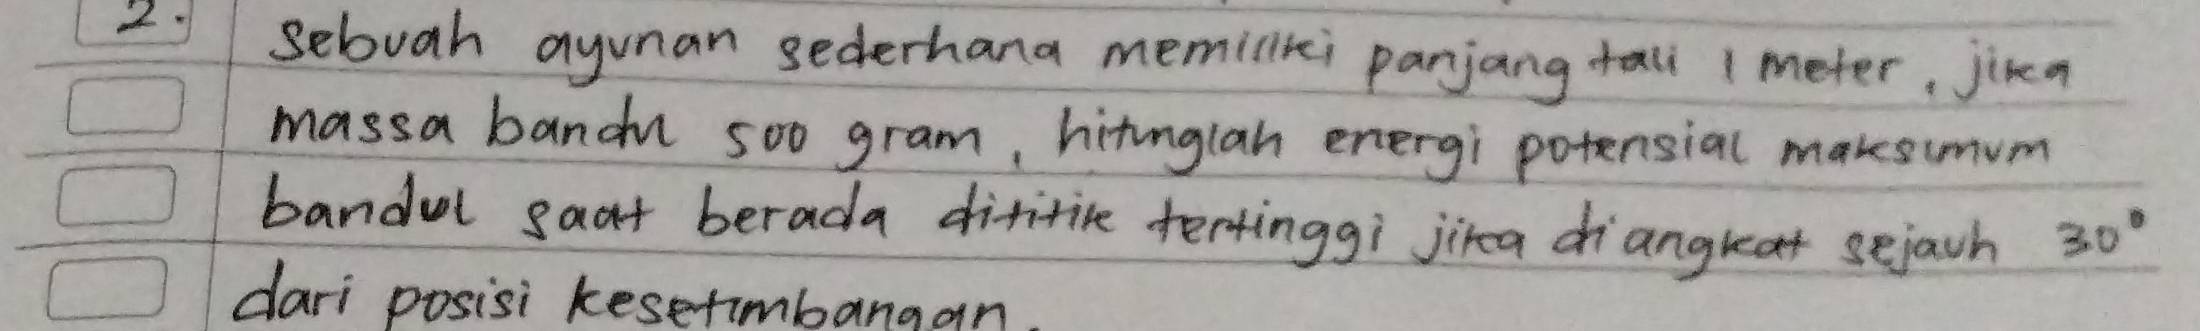 2. sebuah ayunan sederhana memiliki panjang tali 1 meter, jika
massa bandul 500 gram, hitunglah energi potensial maksimum
bandul saat berada dititik tertinggi jika diangkat sejauh 30°
dari posisi kesetimbangan.